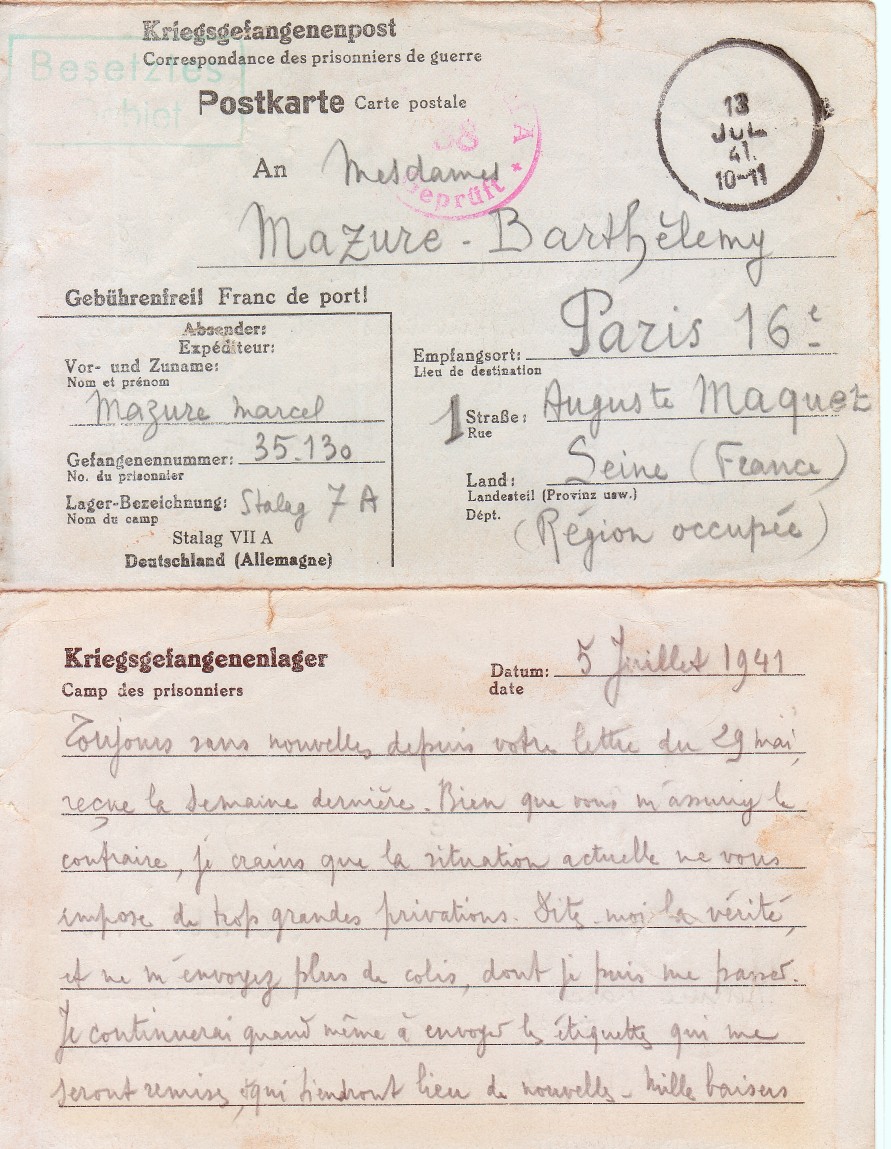 Kriegsgefangenenpost
Correspondance des prisonniers de guerre
Besetztes
Gebiet
Postkarte Carte postale
38
Geprüft
A
13
JUL
41.
10-11
An Mesdames
Mazure - Barthélemy
Gebührenfrei! Franc de port!
Absender:
Expéditeur:
Vor- und Zuname:
Nom et prénom
Mazure Marcel
Gefangenennummer: 35.130
No. du prisonnier
Lager-Bezeichnung: Stalag 7 A
Nom du camp
Stalag VII A
Deutschland (Allemagne)
Empfangsort: Paris 16e
Lieu de destination
1 Straße: Auguste Maquet
Rue
Land: Seine (France)
Landesteil (Provinz usw.)
Dépt. (Région occupée)
Kriegsgefangenenlager
Camp des prisonniers
Datum: 5 Juillet 1941
date
Toujours sans nouvelles depuis votre lettre du 29 mai,
reçue la semaine dernière. Bien que vous m'assuriez le
contraire, je crains que la situation actuelle ne vous
impose de trop grandes privations. Dites-moi la vérité,
et ne m'envoyez plus de colis, dont je puis me passer.
Je continuerai quand même à envoyer les étiquettes qui me
seront remises, qui tiendront lieu de nouvelles - Mille baisers